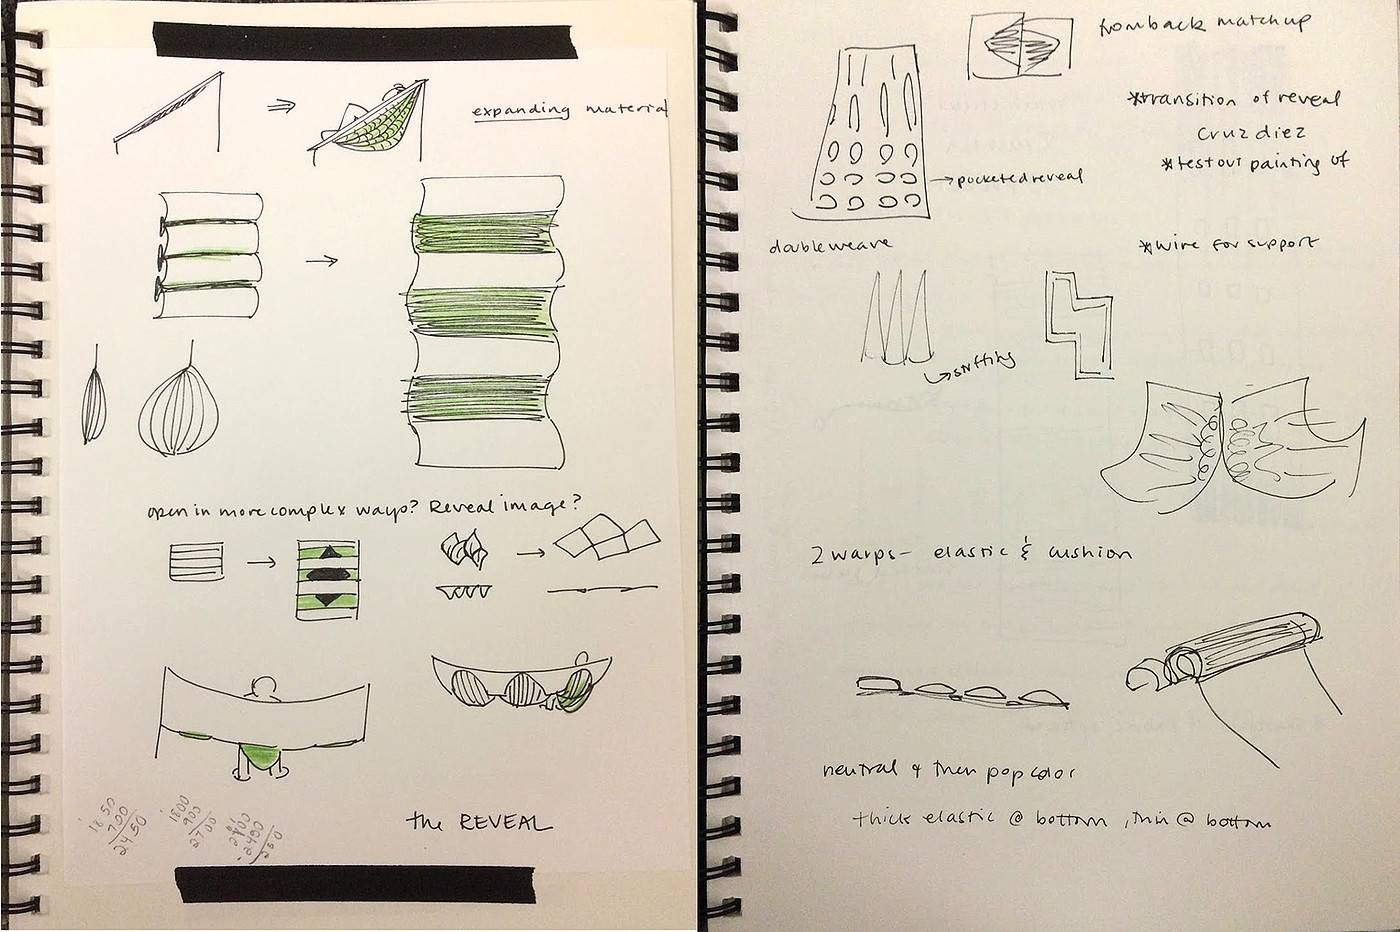 expanding material
open in more complex ways? Reveal image?
the REVEAL
1850
700
2450
1800
900
2700
2700
2450
250
from back matchup
*transition of reveal
cruz diez
*test out painting of
→ pocketed reveal
doubleweave
*wire for support
stuffing
2 warps - elastic & cushion
neutral & then pop color
thick elastic @ bottom, thin @ bottom